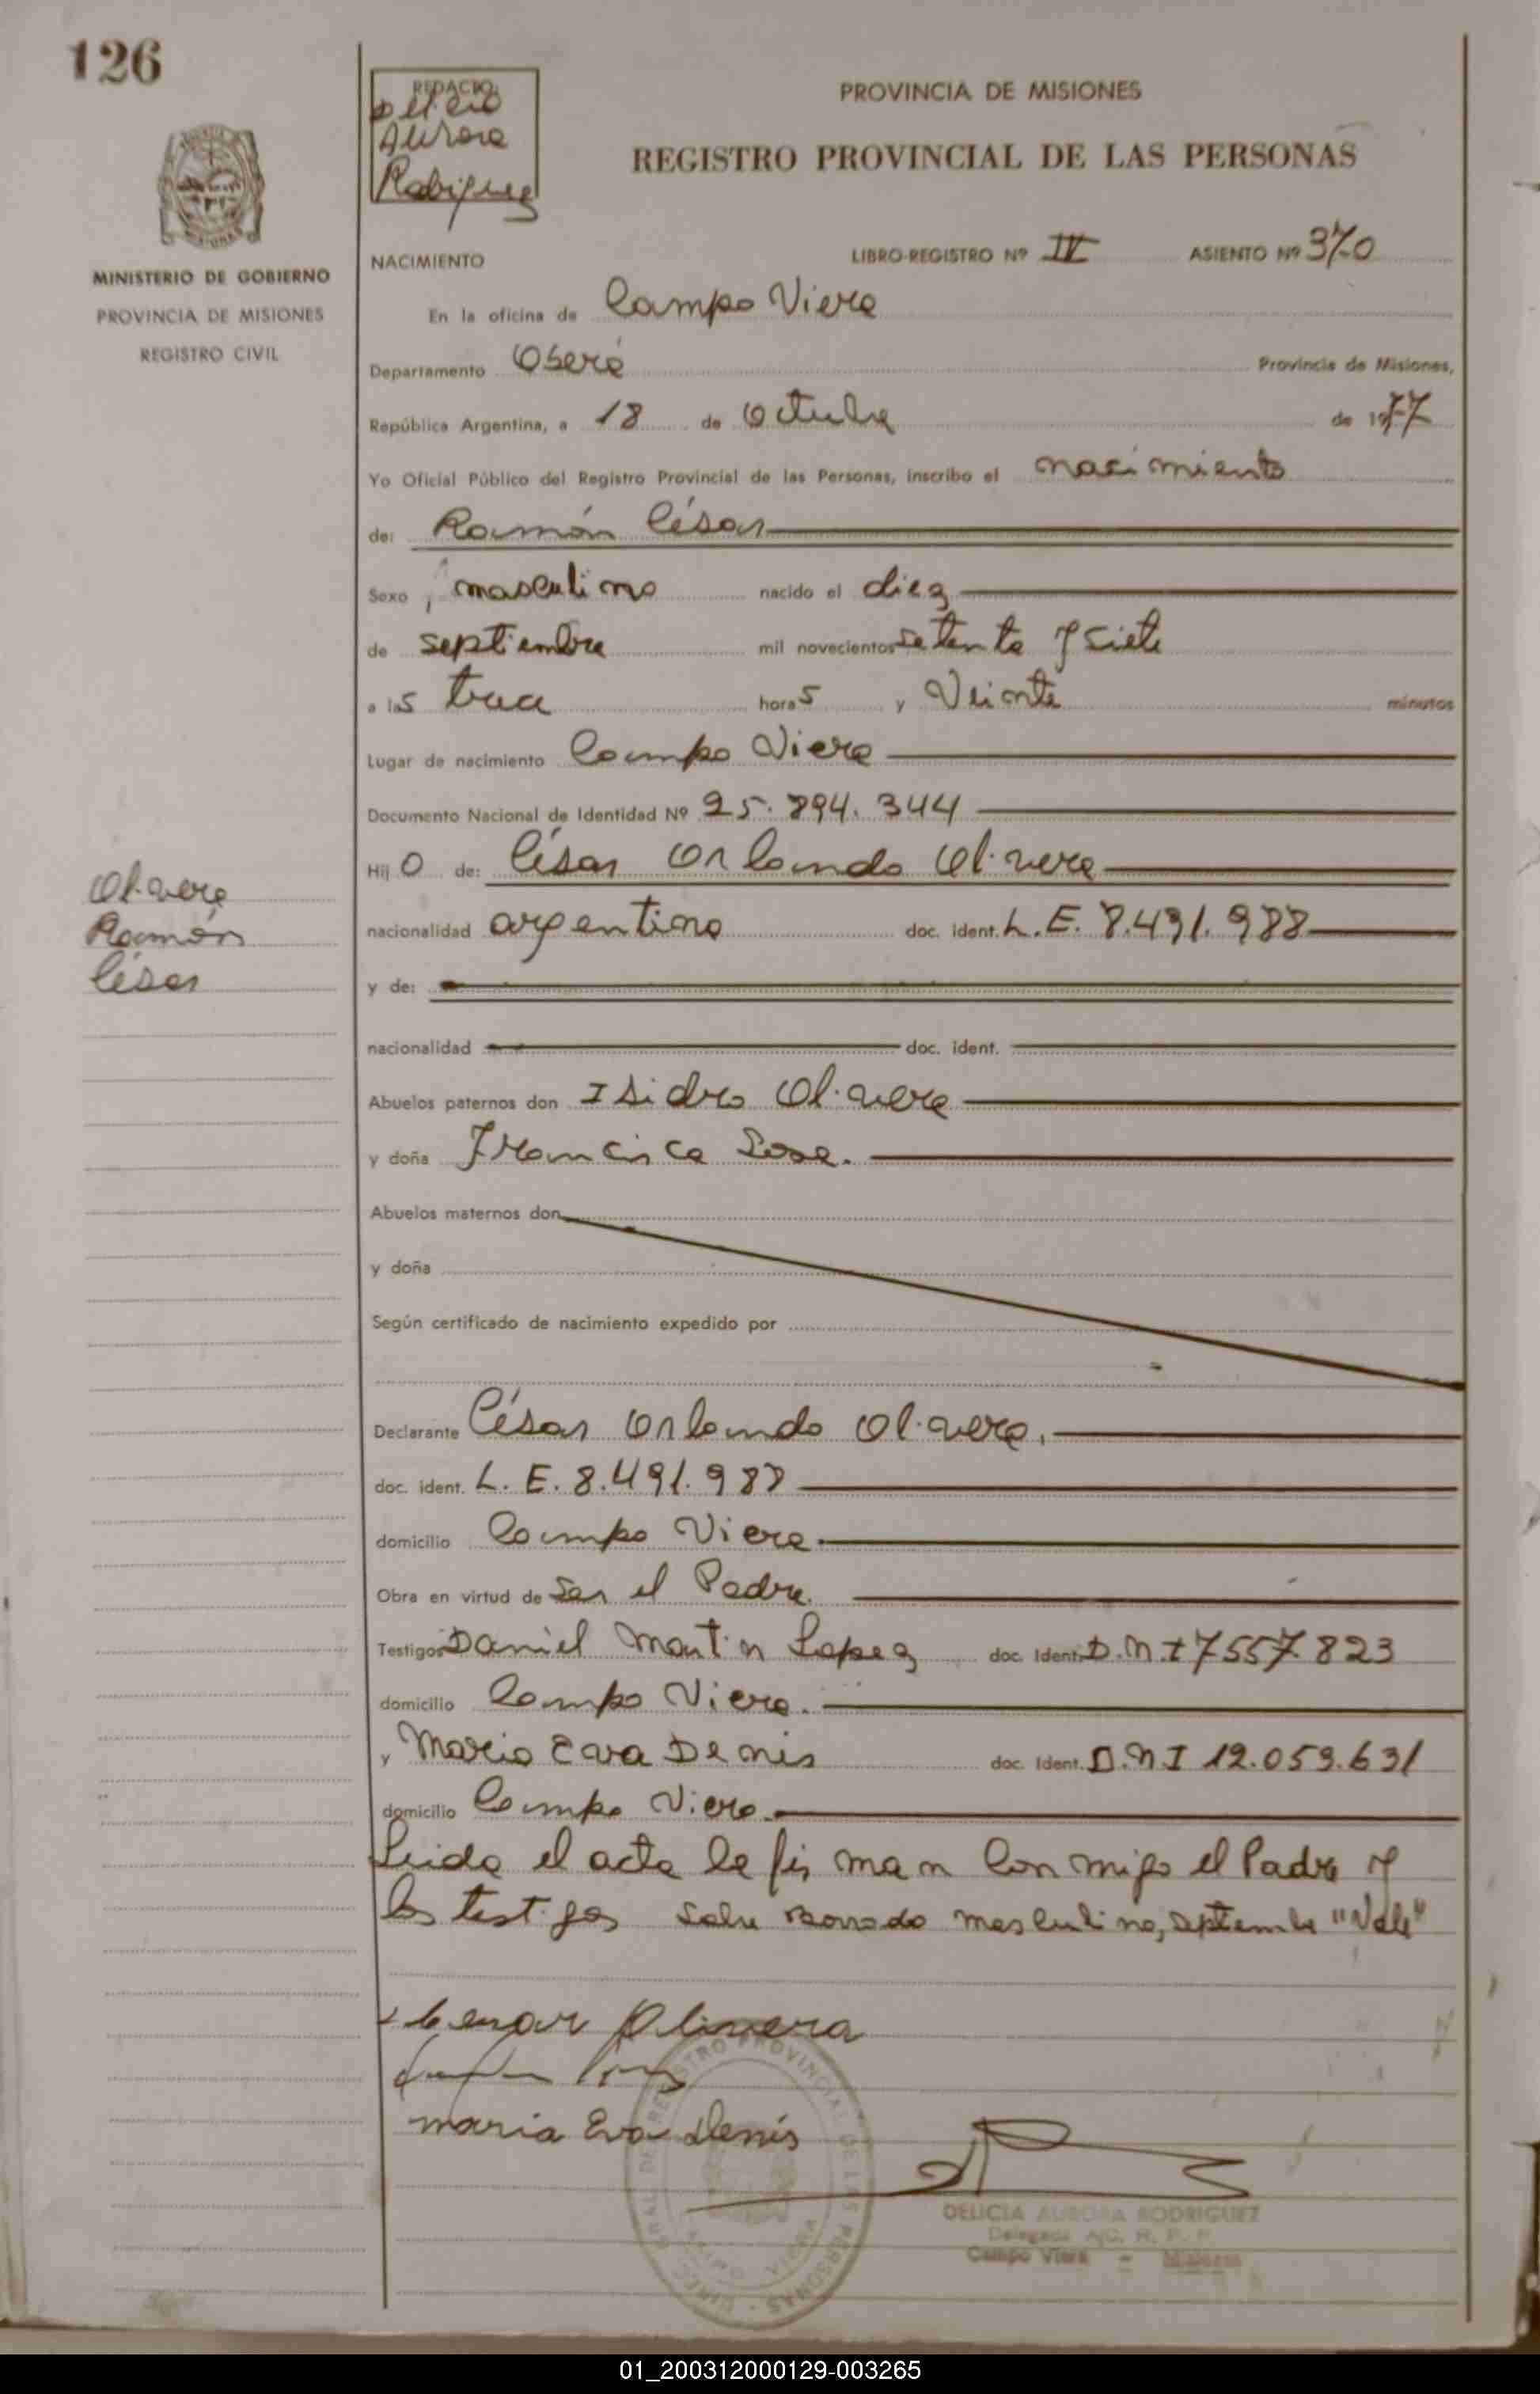 126
REDACTO
Delicia
Aurora
Rodriguez
PROVINCIA DE MISIONES
REGISTRO PROVINCIAL DE LAS PERSONAS
MINISTERIO DE GOBIERNO
PROVINCIA DE MISIONES
REGISTRO CIVIL
NACIMIENTO LIBRO-REGISTRO Nº IV ASIENTO Nº 370
En la oficina de Campo Viera
Departamento Oberá Provincia de Misiones,
República Argentina, a 18 de Octubre de 1977
Yo Oficial Público del Registro Provincial de las Personas, inscribo el nacimiento
de: Ramón César
Sexo masculino nacido el diez
de septiembre mil novecientos setenta y siete
a las trece horas y Veinte minutos
Lugar de nacimiento Campo Viera
Documento Nacional de Identidad Nº 25.894.344
Hijo de: César Orlando Olivera
nacionalidad argentino doc. ident. L.E. 8.491.988
Olivera
Ramón
César
y de:
nacionalidad doc. ident.
Abuelos paternos don Isidro Olivera
y doña Francisca Sosa.
Abuelos maternos don
y doña
Según certificado de nacimiento expedido por
Declarante César Orlando Olivera.
doc. ident. L.E. 8.491.988
domicilio Campo Viera.
Obra en virtud de Ser el Padre.
Testigos Daniel Martin Lopez doc. Ident. D.N.I 7557.823
domicilio Campo Viera.
y Maria Eva Denis doc. Ident. D.N.I 12.059.631
domicilio Campo Viera
Leida el acta la firman conmigo el Padre y
los testigos sobre borrado masculino, septiembre "Vale"
Olivera
maria Eva denis
DELICIA AURORA RODRIGUEZ
Delegada A/C. R. P. P.
Campo Viera - Misiones
01_200312000129-003265